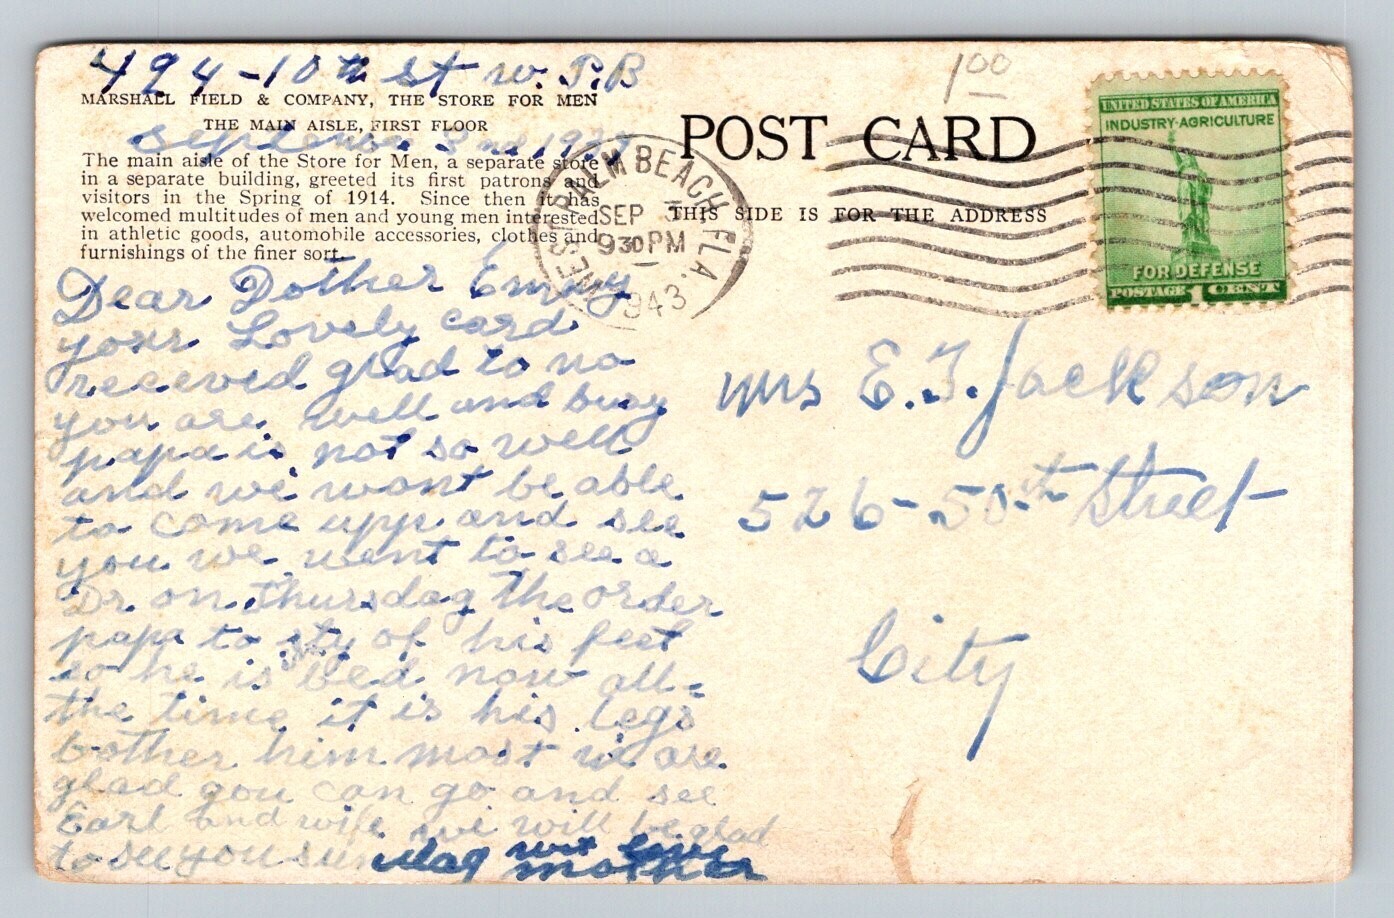 494-10th st w. P.B
MARSHALL FIELD & COMPANY, THE STORE FOR MEN
THE MAIN AISLE, FIRST FLOOR
The main aisle of the Store for Men, a separate store
in a separate building, greeted its first patrons and
visitors in the Spring of 1914. Since then it has
welcomed multitudes of men and young men interested
in athletic goods, automobile accessories, clothes and
furnishings of the finer sort.
Dear Dother Emmy
your Lovely card
receved glad to no
you are well and busy
papa is not so well
and we wont be able
to come upp and see
you we went to see a
Dr on Thursdag the order
papa to sty of his feet
so he is Bed now all-
the time it is his legs
bother him most we are
glad you can go and see
Earl and wife we will be glad
to see you sundag wit love
mother
1.00
POST CARD
THIS SIDE IS FOR THE ADDRESS
WEST PALM BEACH, FLA.
SEP 3
930PM
1943
UNITED STATES OF AMERICA
INDUSTRY-AGRICULTURE
FOR DEFENSE
POSTAGE 1 CENT
Mrs E.J. Jackson
526-50th Street
City